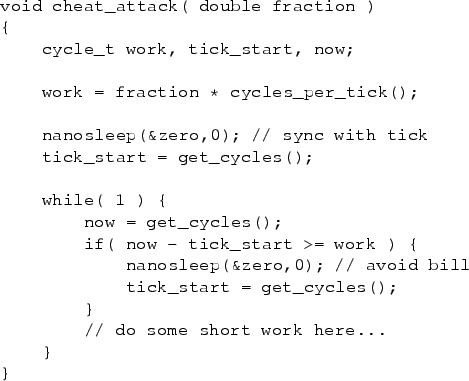 void cheat_attack( double fraction )
{
    cycle_t work, tick_start, now;
    work = fraction * cycles_per_tick();
    nanosleep(&zero,0); // sync with tick
    tick_start = get_cycles();
    while( 1 ) {
        now = get_cycles();
        if( now - tick_start >= work ) {
            nanosleep(&zero,0); // avoid bill
            tick_start = get_cycles();
        }
        // do some short work here...
    }
}